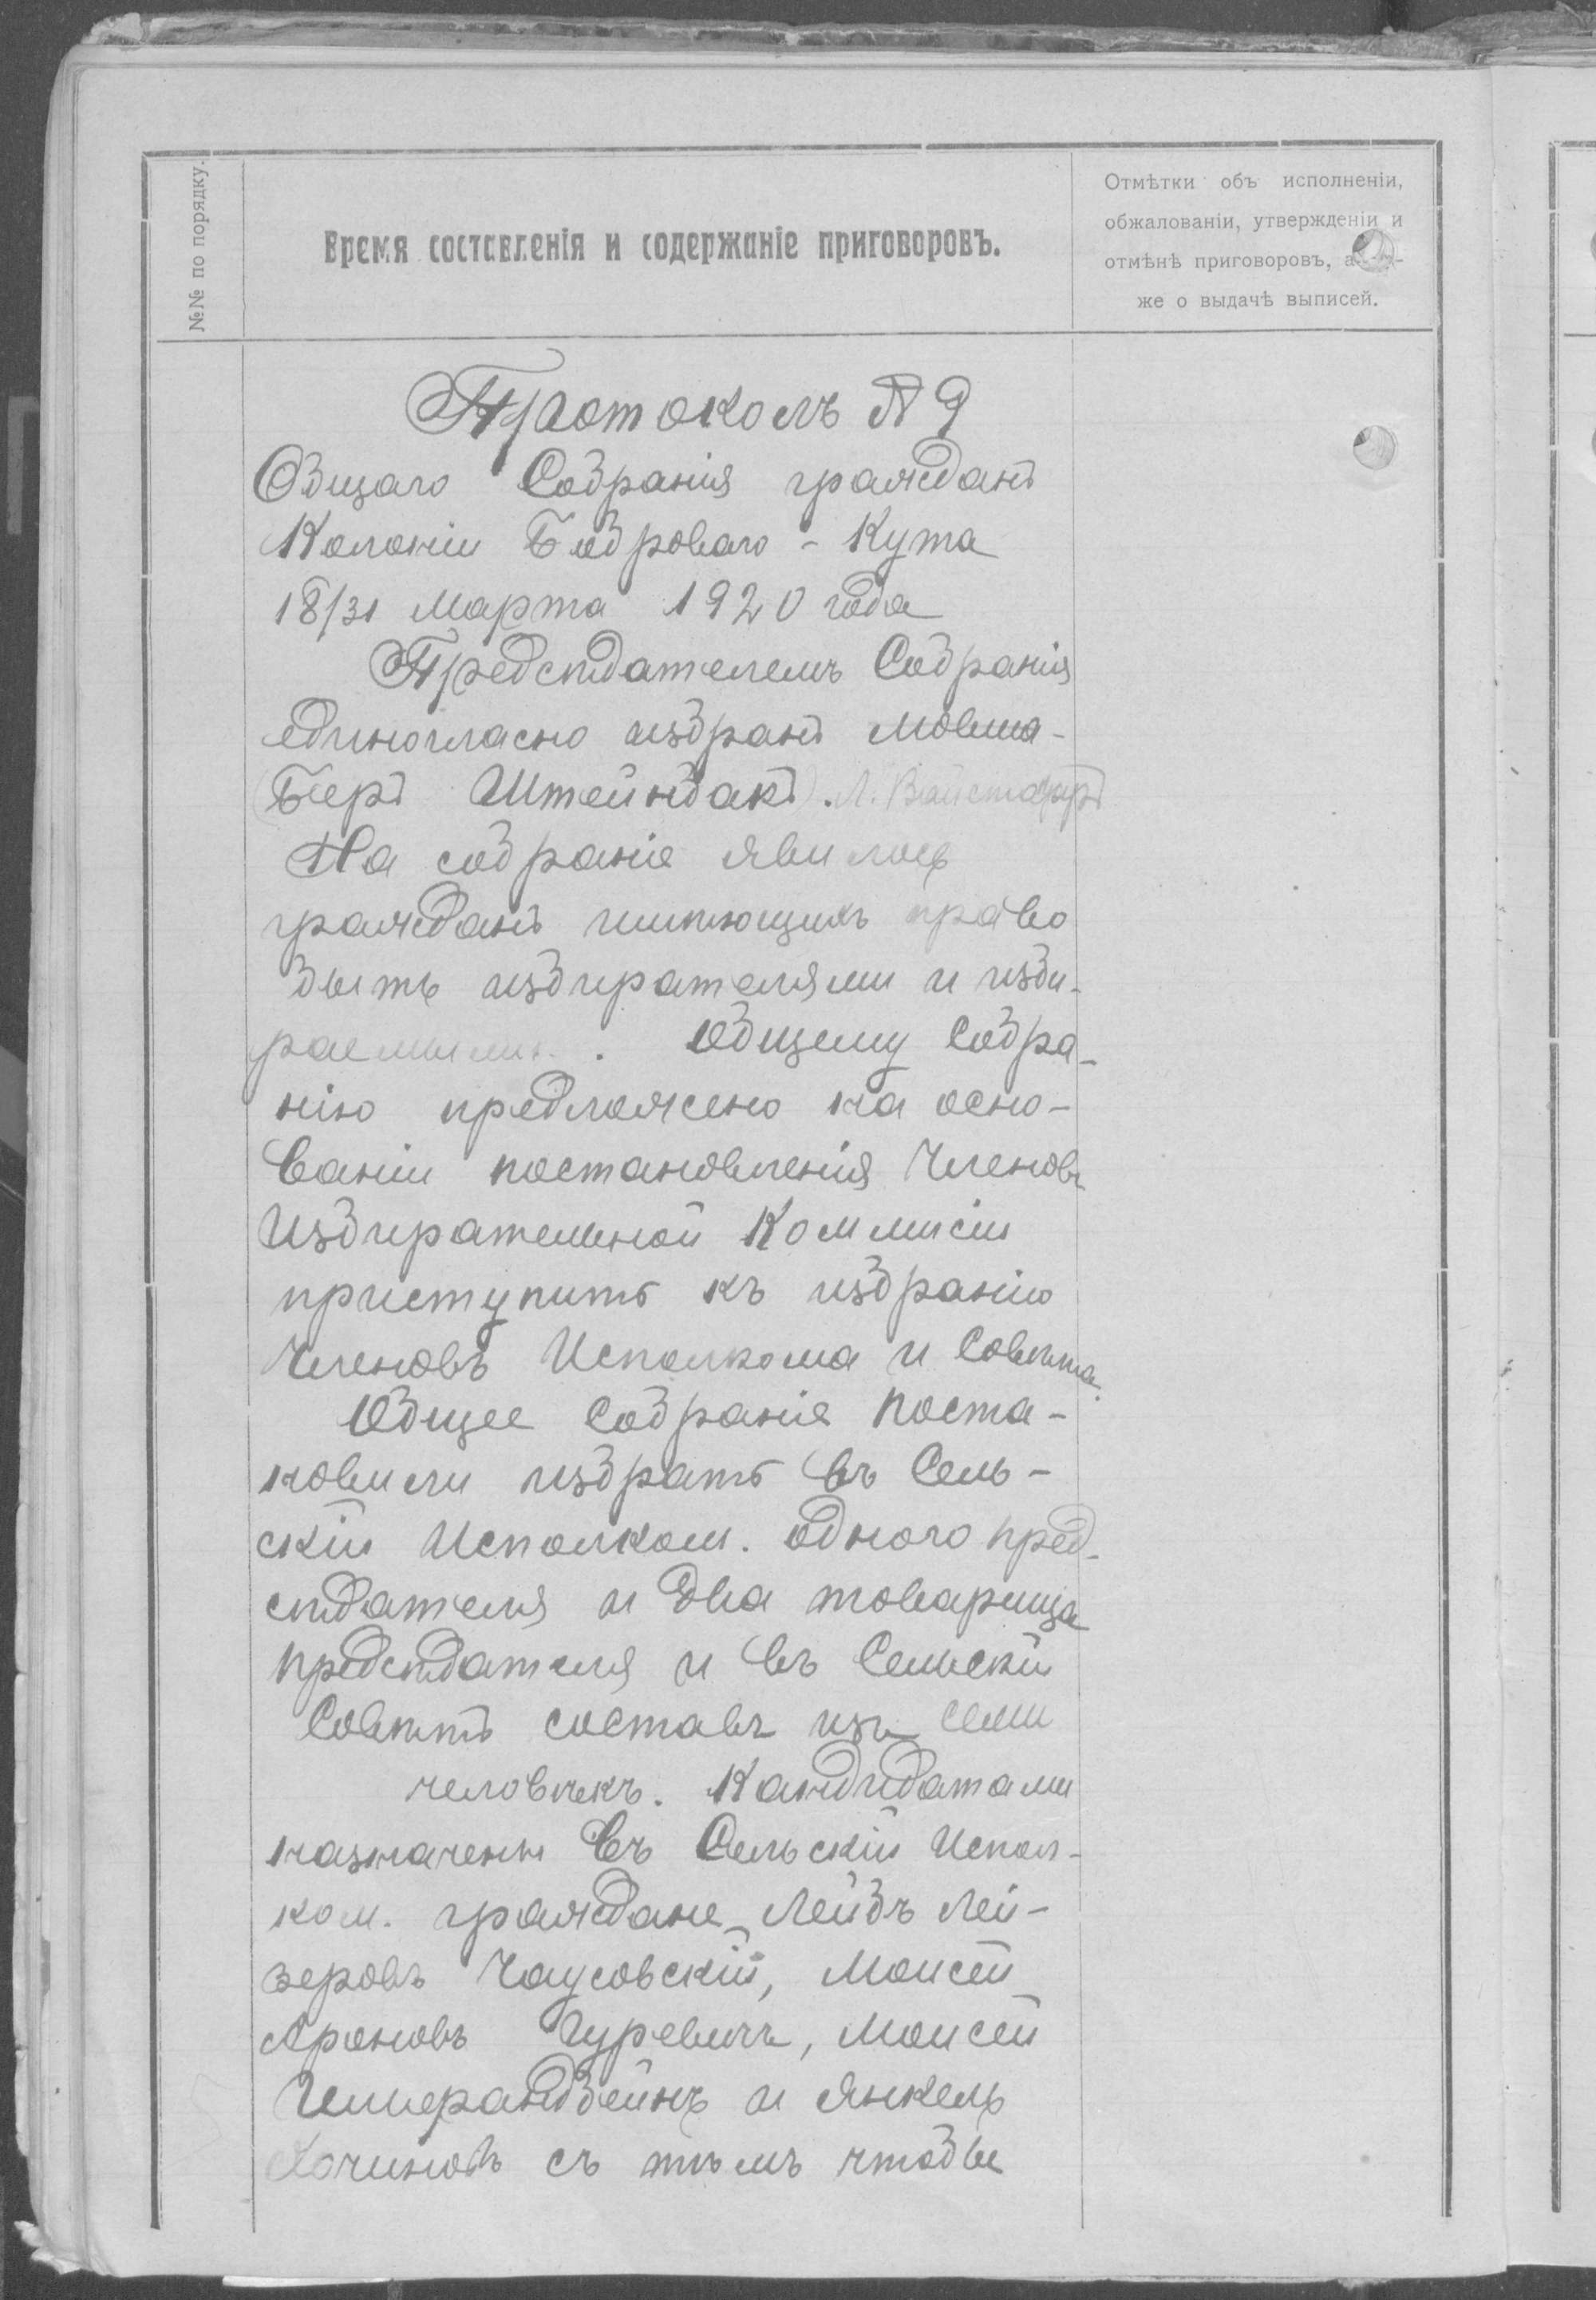 №№ по порядку.
Время составленія и содержаніе приговоровъ.
Отмѣтки объ исполненіи,
обжалованіи, утвержденіи и
отмѣнѣ приговоровъ, а
же о выдачѣ выписей.
Протоколъ № 9
Общаго Собранія гражданъ
Колоніи Боброваго - Кута
18/31 Марта 1920 года
Предсѣдателемъ Собранія
единогласно избранъ Мовша-
(Беръ Штейнбакъ). Л.
На собраніе явилось
гражданъ имѣющихъ право
быть избирателями и изби-
раемыми. Общему Собра-
нію предложено на осно-
ваніи постановленія Членовъ
Избирательной Коммисіи
приступить къ избранію
Членовъ Исполкома и Совѣта.
Общее Собраніе поста-
новили избрать въ Сель-
скій Исполком. одного пред-
сѣдателя и два товарища
предсѣдателя и въ Сельскій
Совѣтъ составъ изъ семи
человѣкъ. Кандидатами
назначены въ Сельскій Испол-
ком. граждане Лейбъ Лей-
зеровъ Чаусовскій, Моисей
Ароновъ Гуревичъ, Моисей
Гимерандбейнъ и Янкель
Хочиновъ съ тѣмъ чтобы